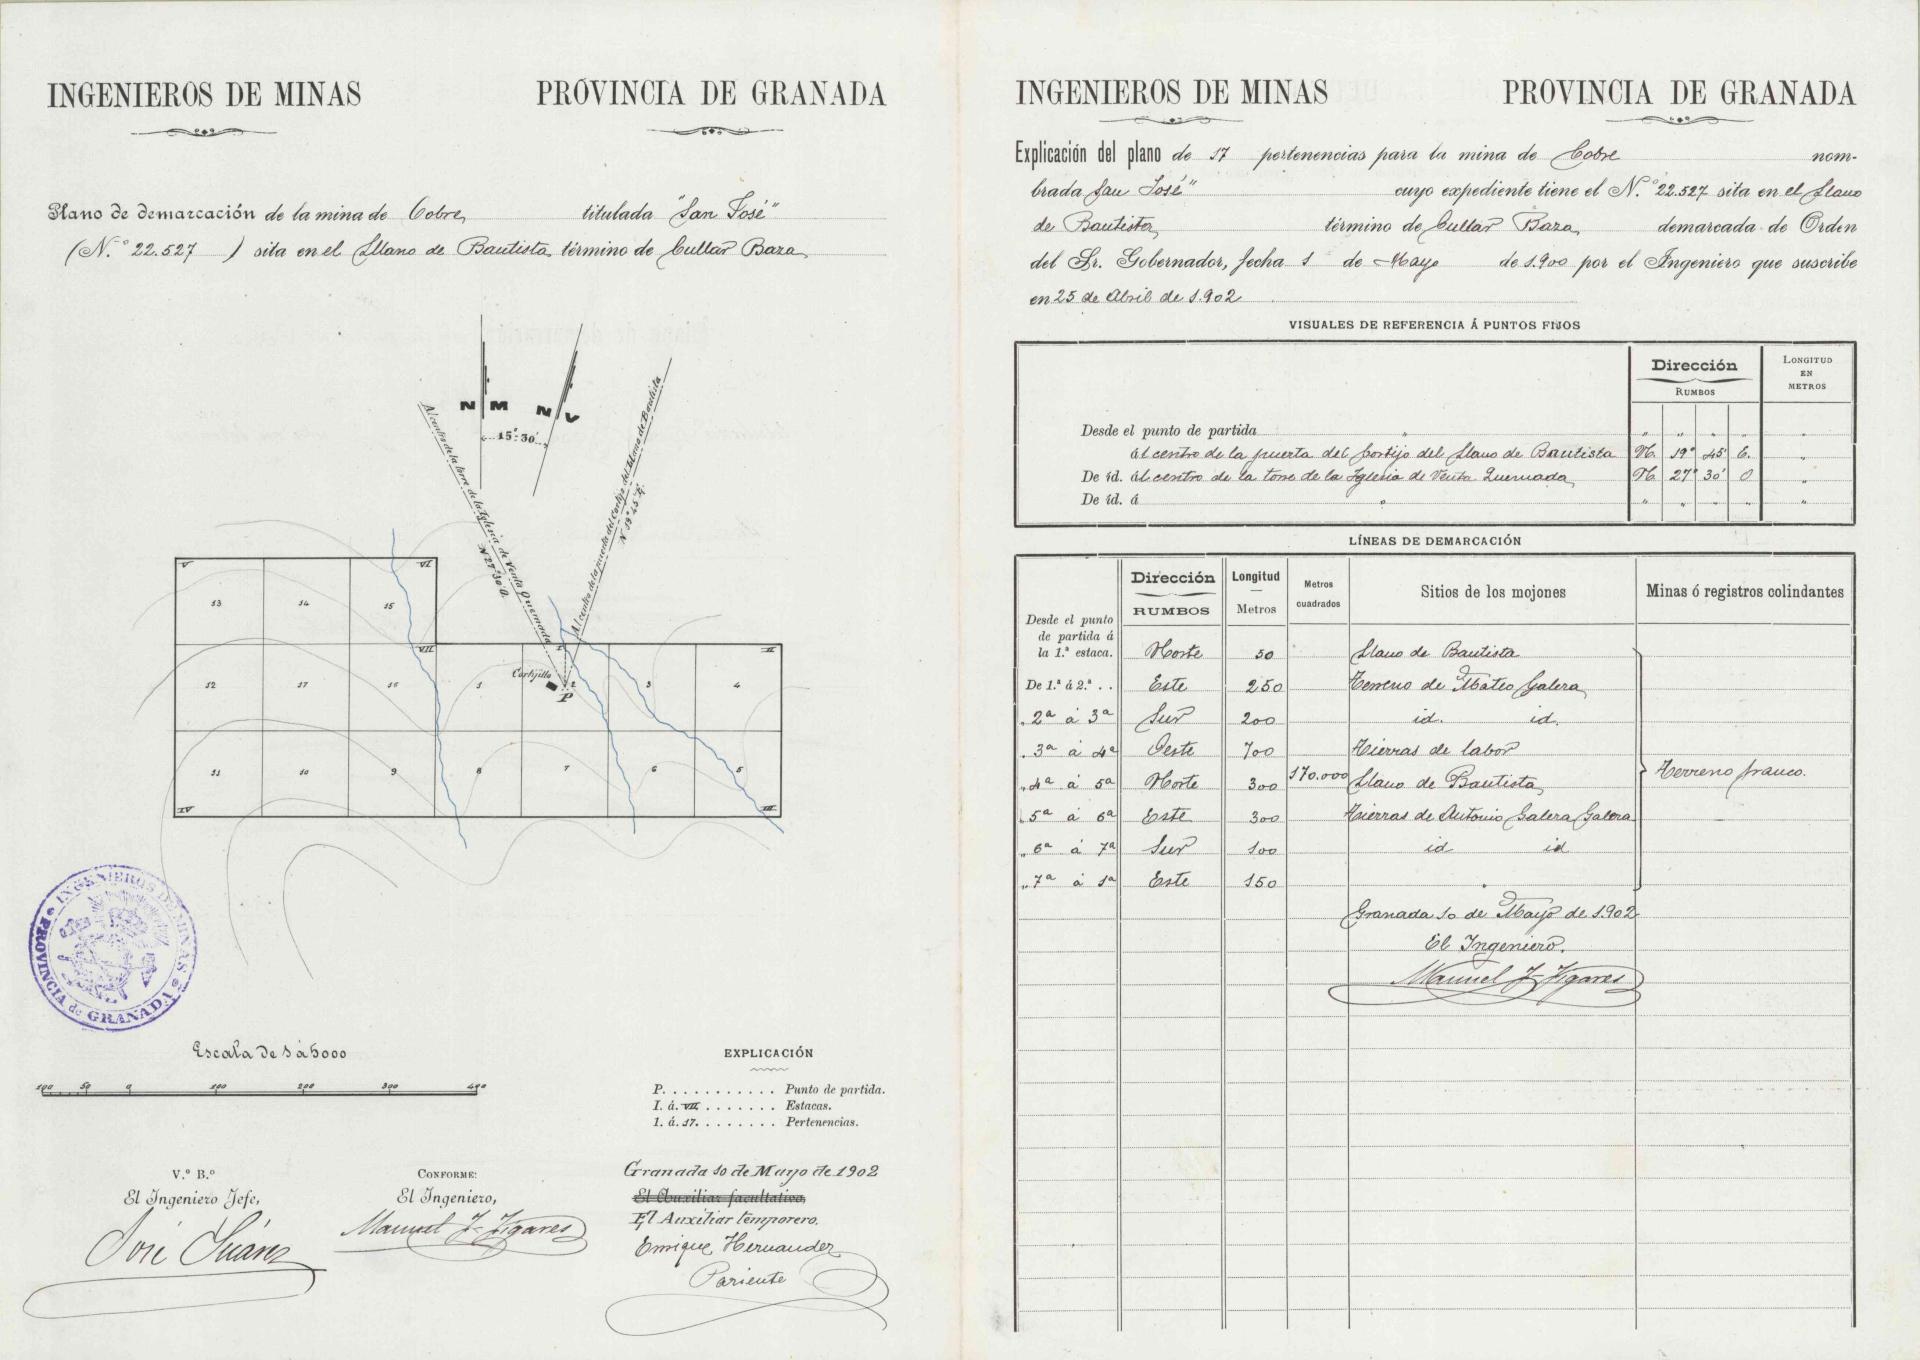 INGENIEROS DE MINAS
PROVINCIA DE GRANADA
Plano de demarcación de la mina de Cobre titulada "San José"
(N.º 22.527 ) sita en el Llano de Bautista término de Cullar Baza
N M
N V
15º 30'
Al centro de la torre de la Iglesia de Venta Quemada
N 27º 30' O.
Al centro de la puerta del Cortijo del Llano de Bautista
N 19º 45' E.
V
VI
13
14
15
VII
I
II
Cortijillo
P
12
17
16
1
2
3
4
11
10
9
8
7
6
5
IV
III
INGENIEROS DE MINAS
PROVINCIA de GRANADA
Escala de 1 á 5000
100 50 0 100 200 300 400
EXPLICACIÓN
P. . . . . . . . . . . . Punto de partida.
I. á. VII. . . . . . . . Estacas.
1. á. 17. . . . . . . . . Pertenencias.
V.º B.º
El Ingeniero Jefe,
José Suárez
CONFORME:
El Ingeniero,
Manuel J. Zigares
Granada 10 de Mayo de 1902
El Auxiliar facultativo,
El Auxiliar temporero.
Enrique Hernandez
Pariente
INGENIEROS DE MINAS
PROVINCIA DE GRANADA
Explicación del plano de 17 pertenencias para la mina de Cobre nom-
brada San José" cuyo expediente tiene el N.º 22.527 sita en el Llano
de Bautista término de Cullar Baza demarcada de Orden
del Sr. Gobernador, fecha 1 de Mayo de 1.900 por el Ingeniero que suscribe
en 25 de Abril de 1.902
VISUALES DE REFERENCIA Á PUNTOS FIJOS
Dirección
RUMBOS
LONGITUD
EN
METROS
Desde el punto de partida " " " " " "
ál centro de la puerta del Cortijo del Llano de Bautista N. 19º 45' E. "
De íd. ál centro de la torre de la Iglesia de Venta Quemada N. 27º 30' O "
De íd. á " " " " " "
LÍNEAS DE DEMARCACIÓN
Dirección
RUMBOS
Longitud
Metros
Metros
cuadrados
Sitios de los mojones
Minas ó registros colindantes
Desde el punto
de partida á
la 1.ª estaca. Norte 50 Llano de Bautista
De 1.ª á 2.ª . . Este 250 Terreno de Mateo Galera
" 2ª á 3ª Sur 200 id. id.
" 3ª á 4ª Oeste 700 Tierras de labor
" 4ª á 5ª Norte 300 170.000 Llano de Bautista Terreno franco.
" 5ª á 6ª Este 300 Tierras de Antonio Galera Galera
" 6ª á 7ª Sur 100 id id
" 7ª á 1ª Este 150 "
Granada 10 de Mayo de 1.902
El Ingeniero.
Manuel J. Zigares